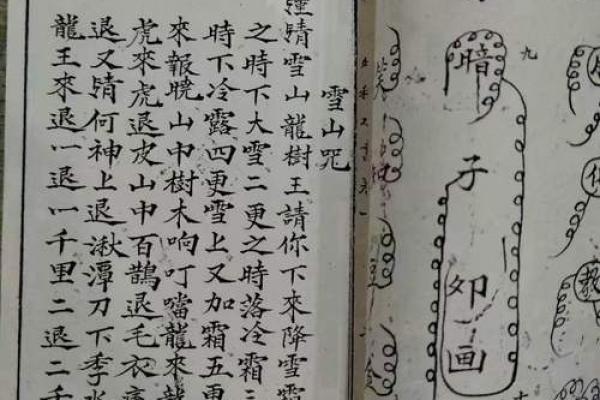 九
暗子卯画
雪山咒
請雪山龍樹王請你下來降雪
之時下大雪二更之時落冷霜三
時下冷露四更雪上又加霜五更
來報曉山中樹木响叮噹龍來龍
虎來虎退皮山中百鵲退毛衣
退又請何神上退湫潭刀下季水
龍王來退一退一千里二退二千